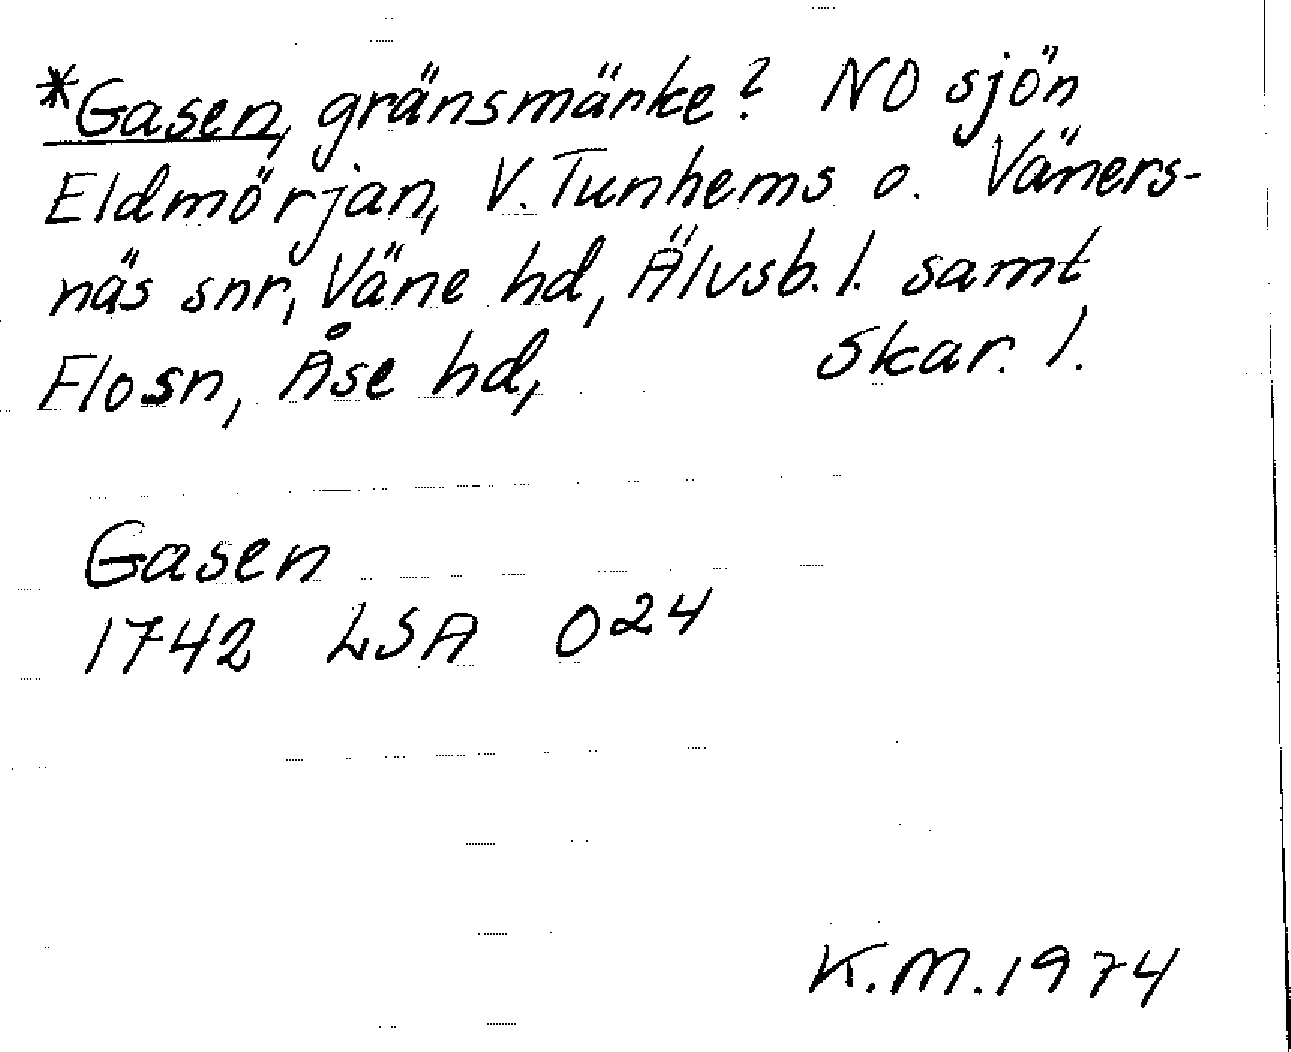 *Gasen, gränsmärke? NO sjön
Eldmörjan, V. Tunhems o. Väners-
näs snr, Väne hd, Älvsb. l. samt
Flosn, Åse hd, Skar. l.
Gasen
1742 LSA O24
K.M. 1974